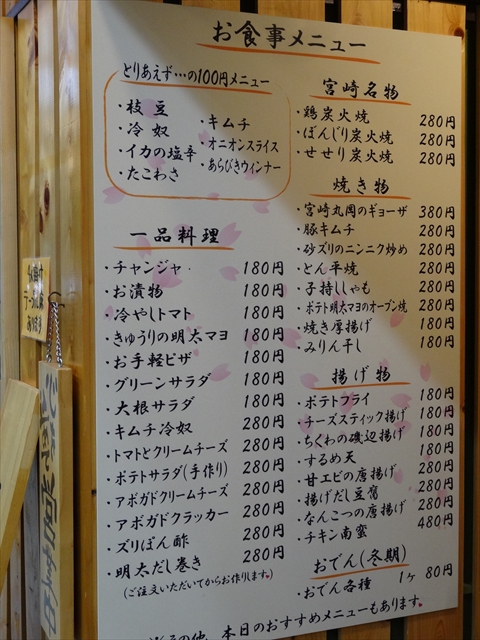 お食事メニュー
とりあえず…の100円メニュー
・枝豆
・冷奴
・イカの塩辛
・たこわさ
・キムチ
・オニオンスライス
・あらびきウィンナー
一品料理
・チャンジャ 180円
・お漬物 180円
・冷やしトマト 180円
・きゅうりの明太マヨ 180円
・お手軽ピザ 180円
・グリーンサラダ 180円
・大根サラダ 180円
・キムチ冷奴 280円
・トマトとクリームチーズ 280円
・ポテトサラダ(手作り) 280円
・アボガドクリームチーズ 280円
・アボガドクラッカー 280円
・ズリぽん酢 280円
・明太だし巻き 280円
(ご注文いただいてからお作ります。)
宮崎名物
・鶏炭火焼 280円
・ぼんじり炭火焼 280円
・せせり炭火焼 280円
焼き物
・宮崎丸岡のギョーザ 380円
・豚キムチ 280円
・砂ズリのニンニク炒め 280円
・とん平焼 280円
・子持ししゃも 280円
・ポテト明太マヨのオーブン焼 280円
・焼き厚揚げ 180円
・みりん干し 180円
揚げ物
・ポテトフライ 180円
・チーズスティック揚げ 180円
・ちくわの磯辺揚げ 180円
・するめ天 180円
・甘エビの唐揚げ 280円
・揚げだし豆腐 280円
・なんこつの唐揚げ 280円
・チキン南蛮 480円
おでん(冬期)
・おでん各種 1ヶ 80円
その他、本日のおすすめメニューもあります。